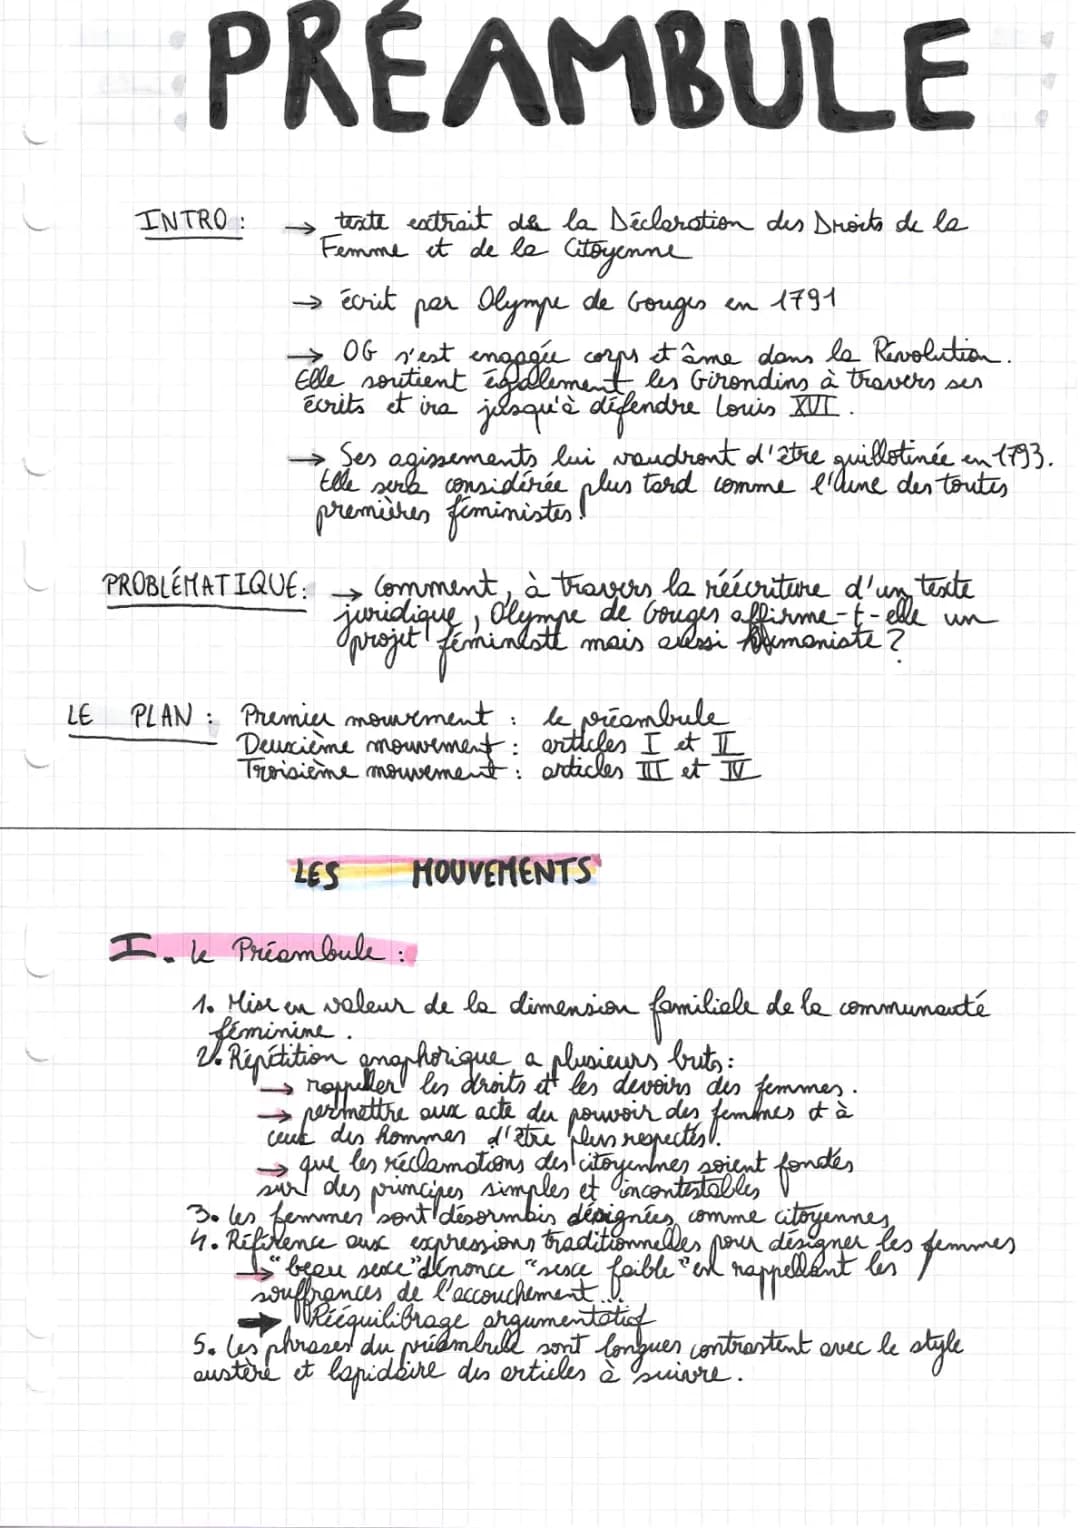 PRÉAMBULE
INTRO : → texte extrait de la Déclaration des Droits de la
Femme et de la Citoyenne
→ écrit par Olympe de Gouges en 1791
→ OG s'est engagée corps et âme dans la Révolution.
Elle soutient également les Girondins à travers ses
écrits et ira jusqu'à défendre Louis XVI.
→ Ses agissements lui vaudront d'être guillotinée en 1793.
Elle sera considérée plus tard comme l'une des toutes
premières féministes !
PROBLÉMATIQUE : → Comment, à travers la réécriture d'un texte
juridique, Olympe de Gouges affirme-t-elle un
projet féministe mais aussi humaniste ?
LE PLAN : Premier mouvement : le préambule
Deuxième mouvement : articles I et II
Troisième mouvement : articles III et IV
LES MOUVEMENTS
I. Le Préambule :
1. Mise en valeur de la dimension familiale de la communauté
féminine.
2. Répétition anaphorique a plusieurs buts :
→ rappeller les droits et les devoirs des femmes.
→ permettre aux acte du pouvoir des femmes et à
ceux des hommes d'être plus respectés.
→ que les réclamations des citoyennes soient fondés
sur des principes simples et incontestables
3. Les femmes sont désormais désignées comme citoyennes
4. Référence aux expressions traditionnelles pour désigner les femmes
↳ "beau sexe" dénonce "sexe faible" en rappellant les
souffrances de l'accouchement...
→ Rééquilibrage argumentatif
5. Les phrases du préambule sont longues contrastent avec le style
austère et lapidaire des articles à suivre.